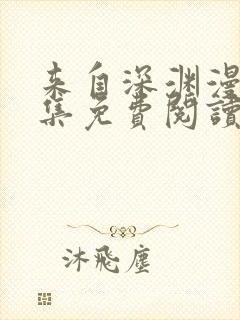 来自深渊漫
集免費閱讀
沐飛塵